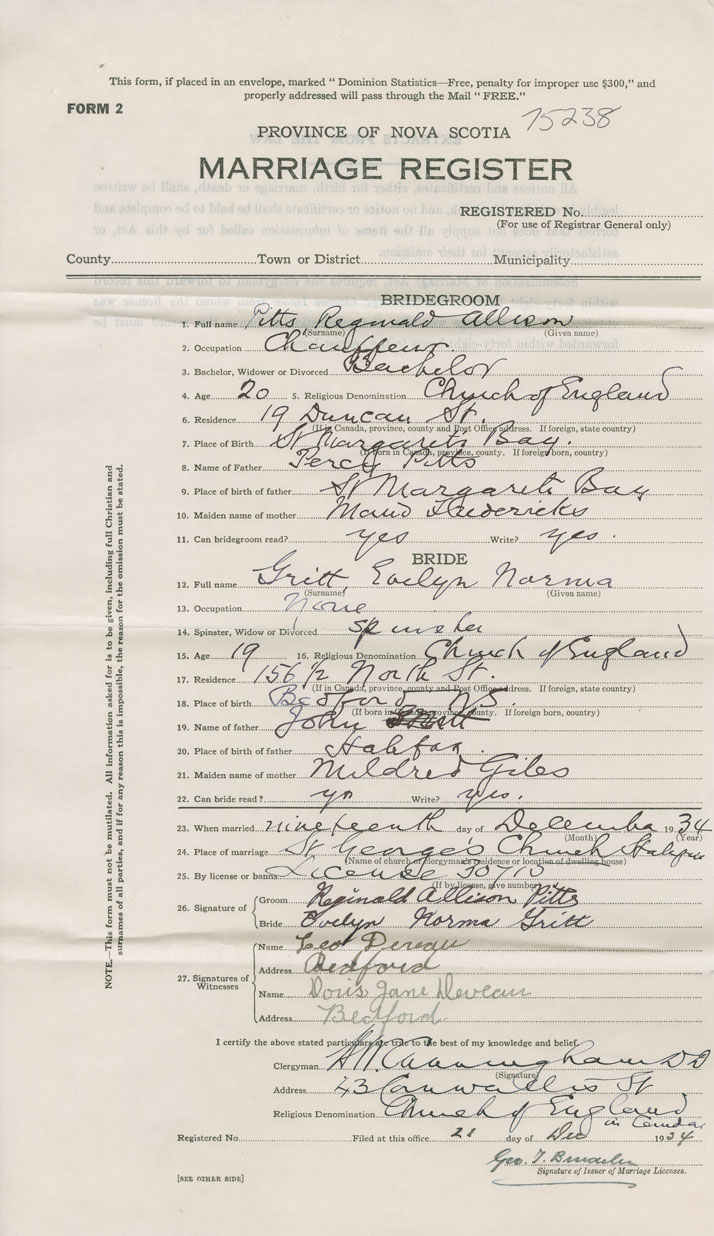 This form, if placed in an envelope, marked " Dominion Statistics—Free, penalty for improper use $300," and
properly addressed will pass through the Mail " FREE."
FORM 2
75238
PROVINCE OF NOVA SCOTIA
MARRIAGE REGISTER
REGISTERED No.
(For use of Registrar General only)
County Town or District Municipality
BRIDEGROOM
1. Full name Pitts Reginald Allison
(Surname) (Given name)
2. Occupation Chauffeur.
3. Bachelor, Widower or Divorced Bachelor
4. Age 20 5. Religious Denomination Church of England
6. Residence 19 Duncan St.
(If in Canada, province, county and Post Office address. If foreign, state country)
7. Place of Birth St Margarets Bay.
(If born in Canada, province, county. If foreign born, country)
8. Name of Father Percy Pitts
9. Place of birth of father St Margarets Bay
10. Maiden name of mother Maud Fredericks
11. Can bridegroom read? yes Write? yes.
BRIDE
12. Full name Gritt, Evelyn Norma
(Surname) (Given name)
13. Occupation None
14. Spinster, Widow or Divorced Spinster
15. Age 19 16. Religious Denomination Church of England
17. Residence 156 1/2 North St.
(If in Canada, province, county and Post Office address. If foreign, state country)
18. Place of birth Bedford N.S.
(If born in Canada, province, county. If foreign born, country)
19. Name of father John Gritt
20. Place of birth of father Halifax.
21. Maiden name of mother Mildred Giles
22. Can bride read? yes Write? yes.
23. When married nineteenth day of December 1934
(Month) (Year)
24. Place of marriage St George's Church Halifax
(Name of church or clergyman's residence or location of dwelling house)
25. By license or banns License 30710
(If by license, give number)
26. Signature of Groom Reginald Allison Pitts
Bride Evelyn Norma Gritt
27. Signatures of Witnesses
Name Leo
Address Bedford
Name Doris Jane Deveau
Address Bedford.
I certify the above stated particulars are true to the best of my knowledge and belief.
Clergyman Cunningham DD
(Signature)
Address 43 Cornwallis St
Religious Denomination Church of England
in Canada
Registered No. Filed at this office 21 day of Dec 1934
Geo. T.
Signature of Issuer of Marriage Licenses.
[SEE OTHER SIDE]
NOTE.—This form must not be mutilated. All information asked for is to be given, including full Christian and
surnames of all parties, and if for any reason this is impossible, the reason for the omission must be stated.